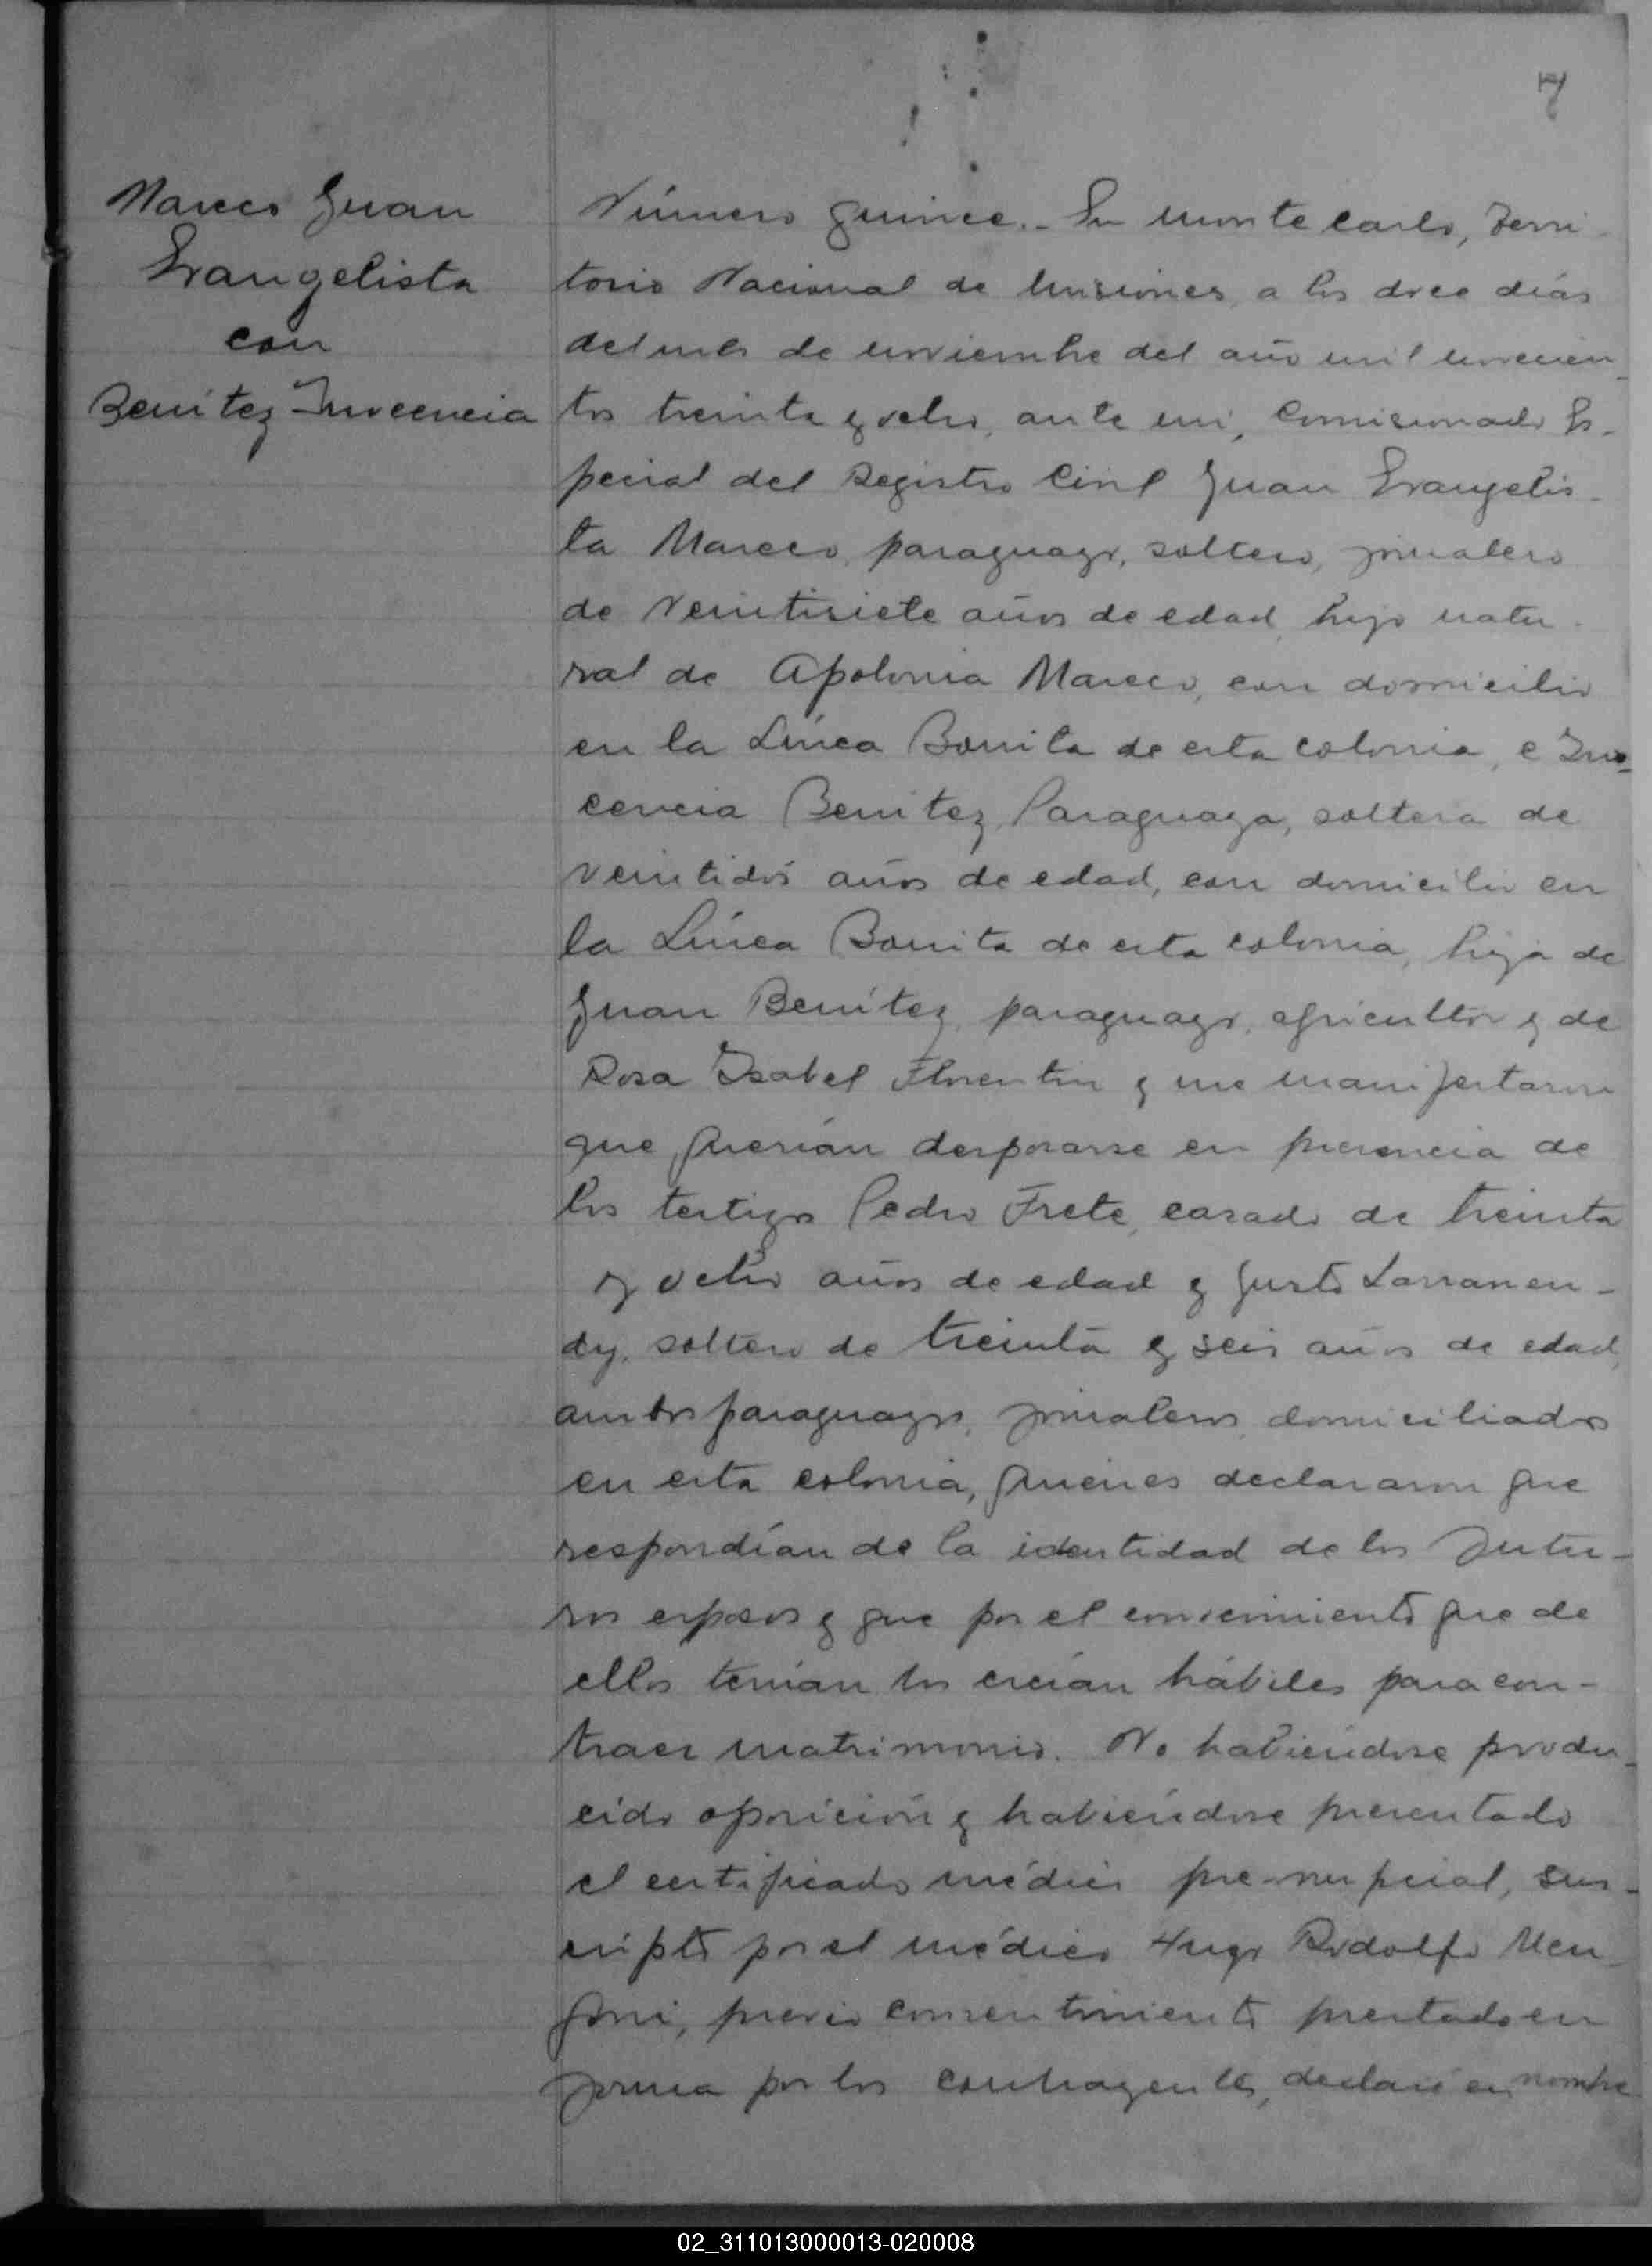 7
Mareco Juan
Evangelista
con
Benítez Inocencia
Número quince.- En Monte Carlo, Terri-
torio Nacional de Misiones, a los doce días
del mes de noviembre del año mil novecien-
tos treinta y ocho, ante mí, Comisionado Es-
pecial del Registro Civil Juan Evangelis-
ta Mareco, paraguayo, soltero, jornalero
de veintisiete años de edad, hijo natu-
ral de Apolonia Mareco, con domicilio
en la Línea Bonita de esta colonia, e Ino-
cencia Benítez, Paraguaya, soltera de
veintidós años de edad, con domicilio en
la Línea Bonita de esta colonia, hija de
Juan Benítez, paraguayo, agricultor y de
Rosa Isabel Florentin y me manifestaron
que querían desposarse en presencia de
los testigos Pedro Frete, casado de treinta
y ocho años de edad y Justo Larramen-
dy, soltero de treinta y seis años de edad,
ambos paraguayos, jornaleros, domiciliados
en esta colonia, quienes declararon que
respondían de la identidad de los futu-
ros esposos y que por el conocimiento que de
ellos tenían los creían hábiles para con-
traer matrimonio. No habiéndose produ-
cido oposición y habiéndose presentado
el certificado médico pre-nupcial, sus-
cripto por el médico Hugo Rodolfo Men
goni, previo consentimiento prestado en
forma por los contrayentes, declaré en nombre
02_311013000013-020008